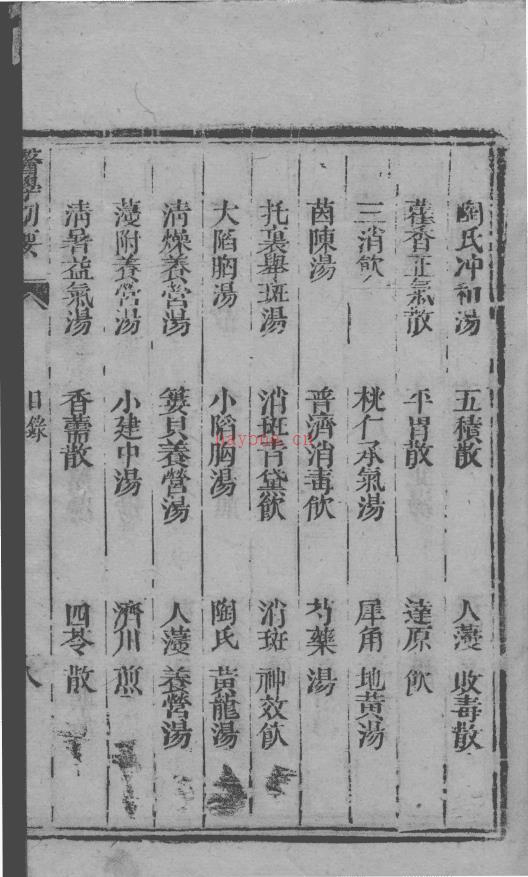 陶氏冲和湯 五積散 人薓敗毒散
藿香正氣散 平胃散 達原飲
三消飲 桃仁承氣湯 犀角地黃湯
茵陳湯 普濟消毒飲 芍藥湯
托裏舉斑湯 消斑青黛飲 消斑神效飲
大陷胸湯 小陷胸湯 陶氏黃龍湯
清燥養營湯 蔞貝養營湯 人薓養營湯
薓附養營湯 小建中湯 濟川煎
清暑益氣湯 香薷散 四苓散
醫學 要 目錄 八